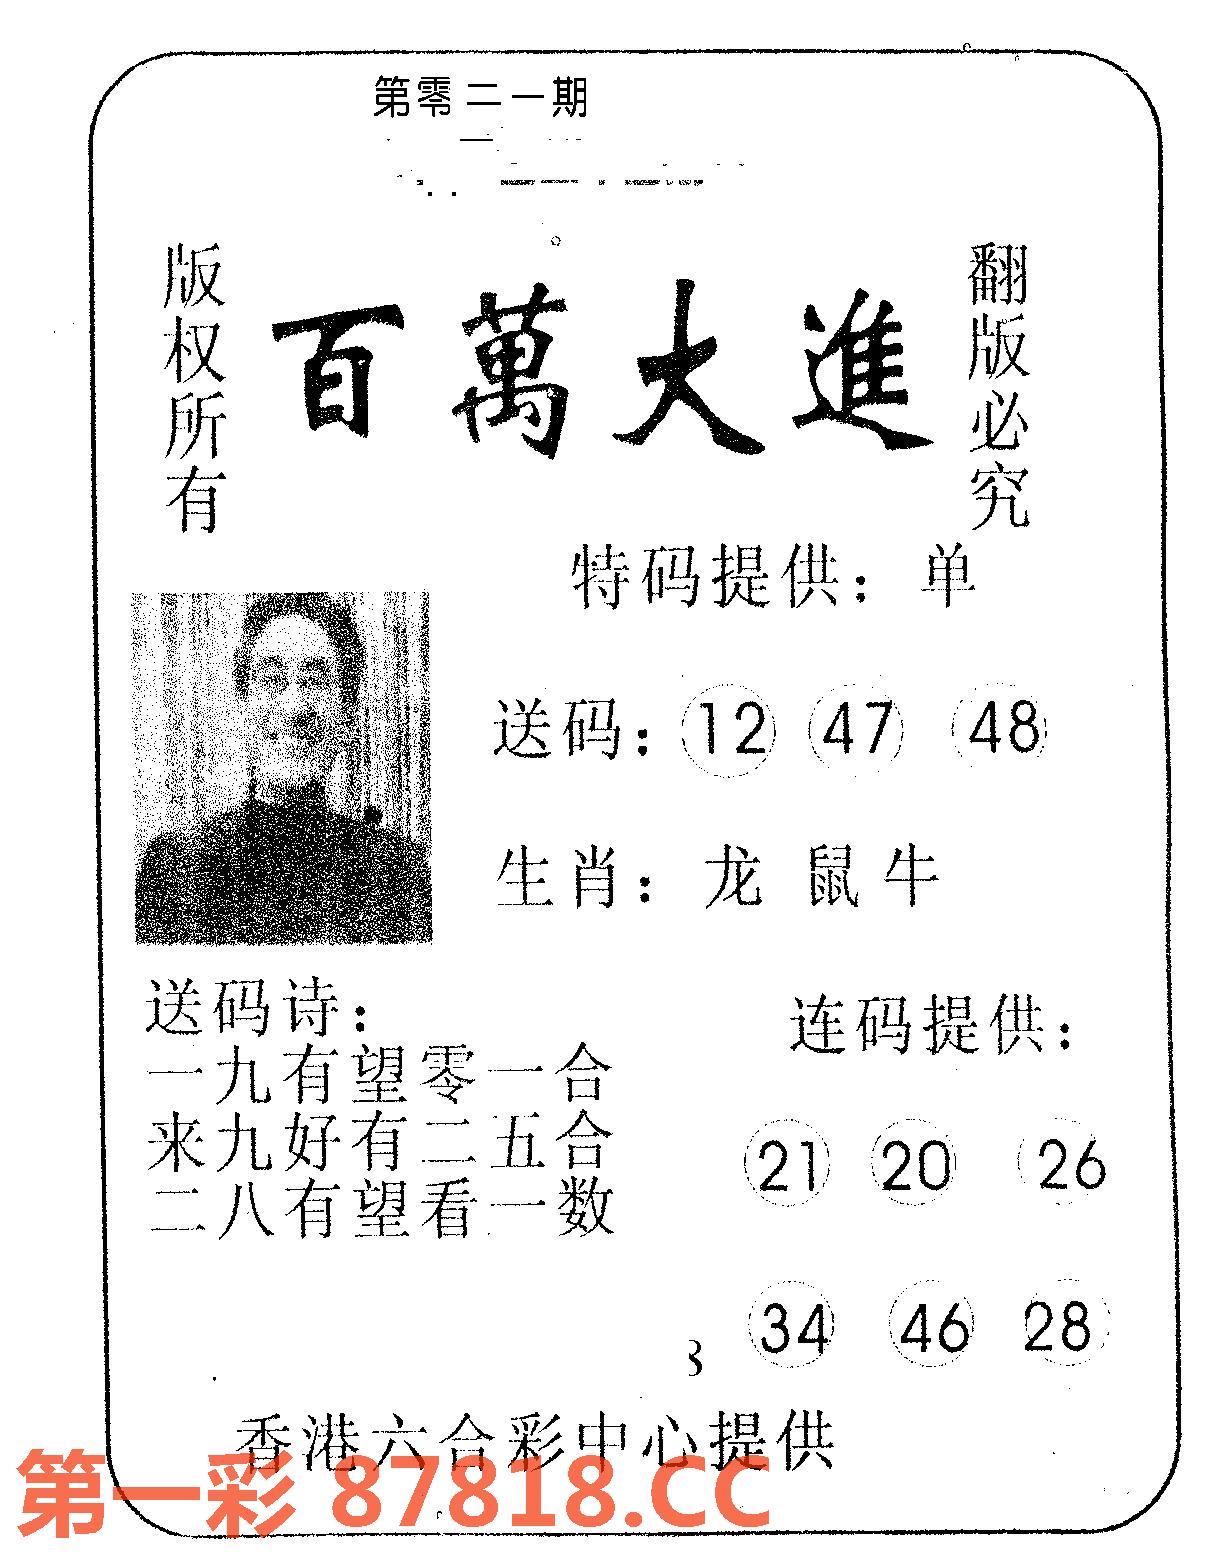 第零二一期
版权所有
百萬大進
翻版必究
特码提供：单
送码：12 47 48
生肖：龙 鼠 牛
送码诗：
一九有望零一合
来九好有二五合
二八有望看一数
连码提供：
21 20 26
34 46 28
香港六合彩中心提供
第一彩 87818.CC